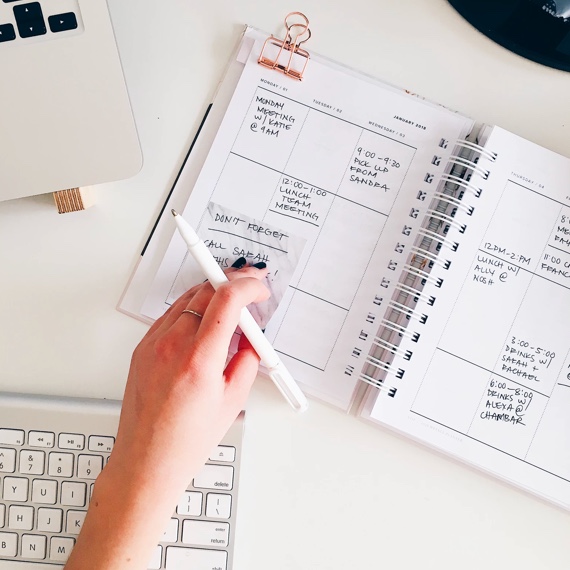 MONDAY / 01
TUESDAY / 02
WEDNESDAY / 03
JANUARY 2018
MONDAY
MEETING
W/ KATIE
@ 9AM
9:00-9:30
PICK UP
FROM
SANDRA
12:00-1:00
LUNCH
TEAM
MEETING
DON'T FORGET
CALL SARAH
THURSDAY / 04
12PM-2PM
LUNCH W/
ALLY @
NOSH
3:00-5:00
DRINKS W/
SARAH +
RACHAEL
6:00-8:00
DRINKS W/
ALEXA @
CHAMBAR
delete
return
Y
U
I
H
J
K
B
N
M
&
7
*
8
(
9